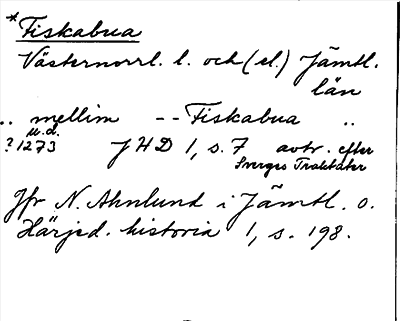 *Fiskabua
Västernorrl. l. och (el.) Jämtl.
län
.. mellim -- Fiskabua ..
u.d.
?1273 JHD 1, s. 7 avtr. efter
Sverges Traktater
Jfr N. Ahnlund i Jämtl. o.
Härjed. historia 1, s. 198.